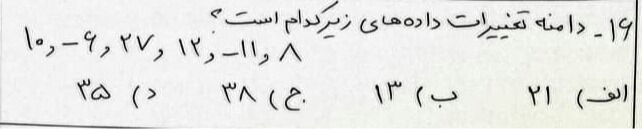 ۱۶- دامنه تغییرات داده‌های زیر کدام است؟
۸ و ۱۱- و ۱۲ و ۲۷ و ۶- و ۱۰
الف) ۲۱ ب) ۱۳ ج) ۳۸ د) ۳۵